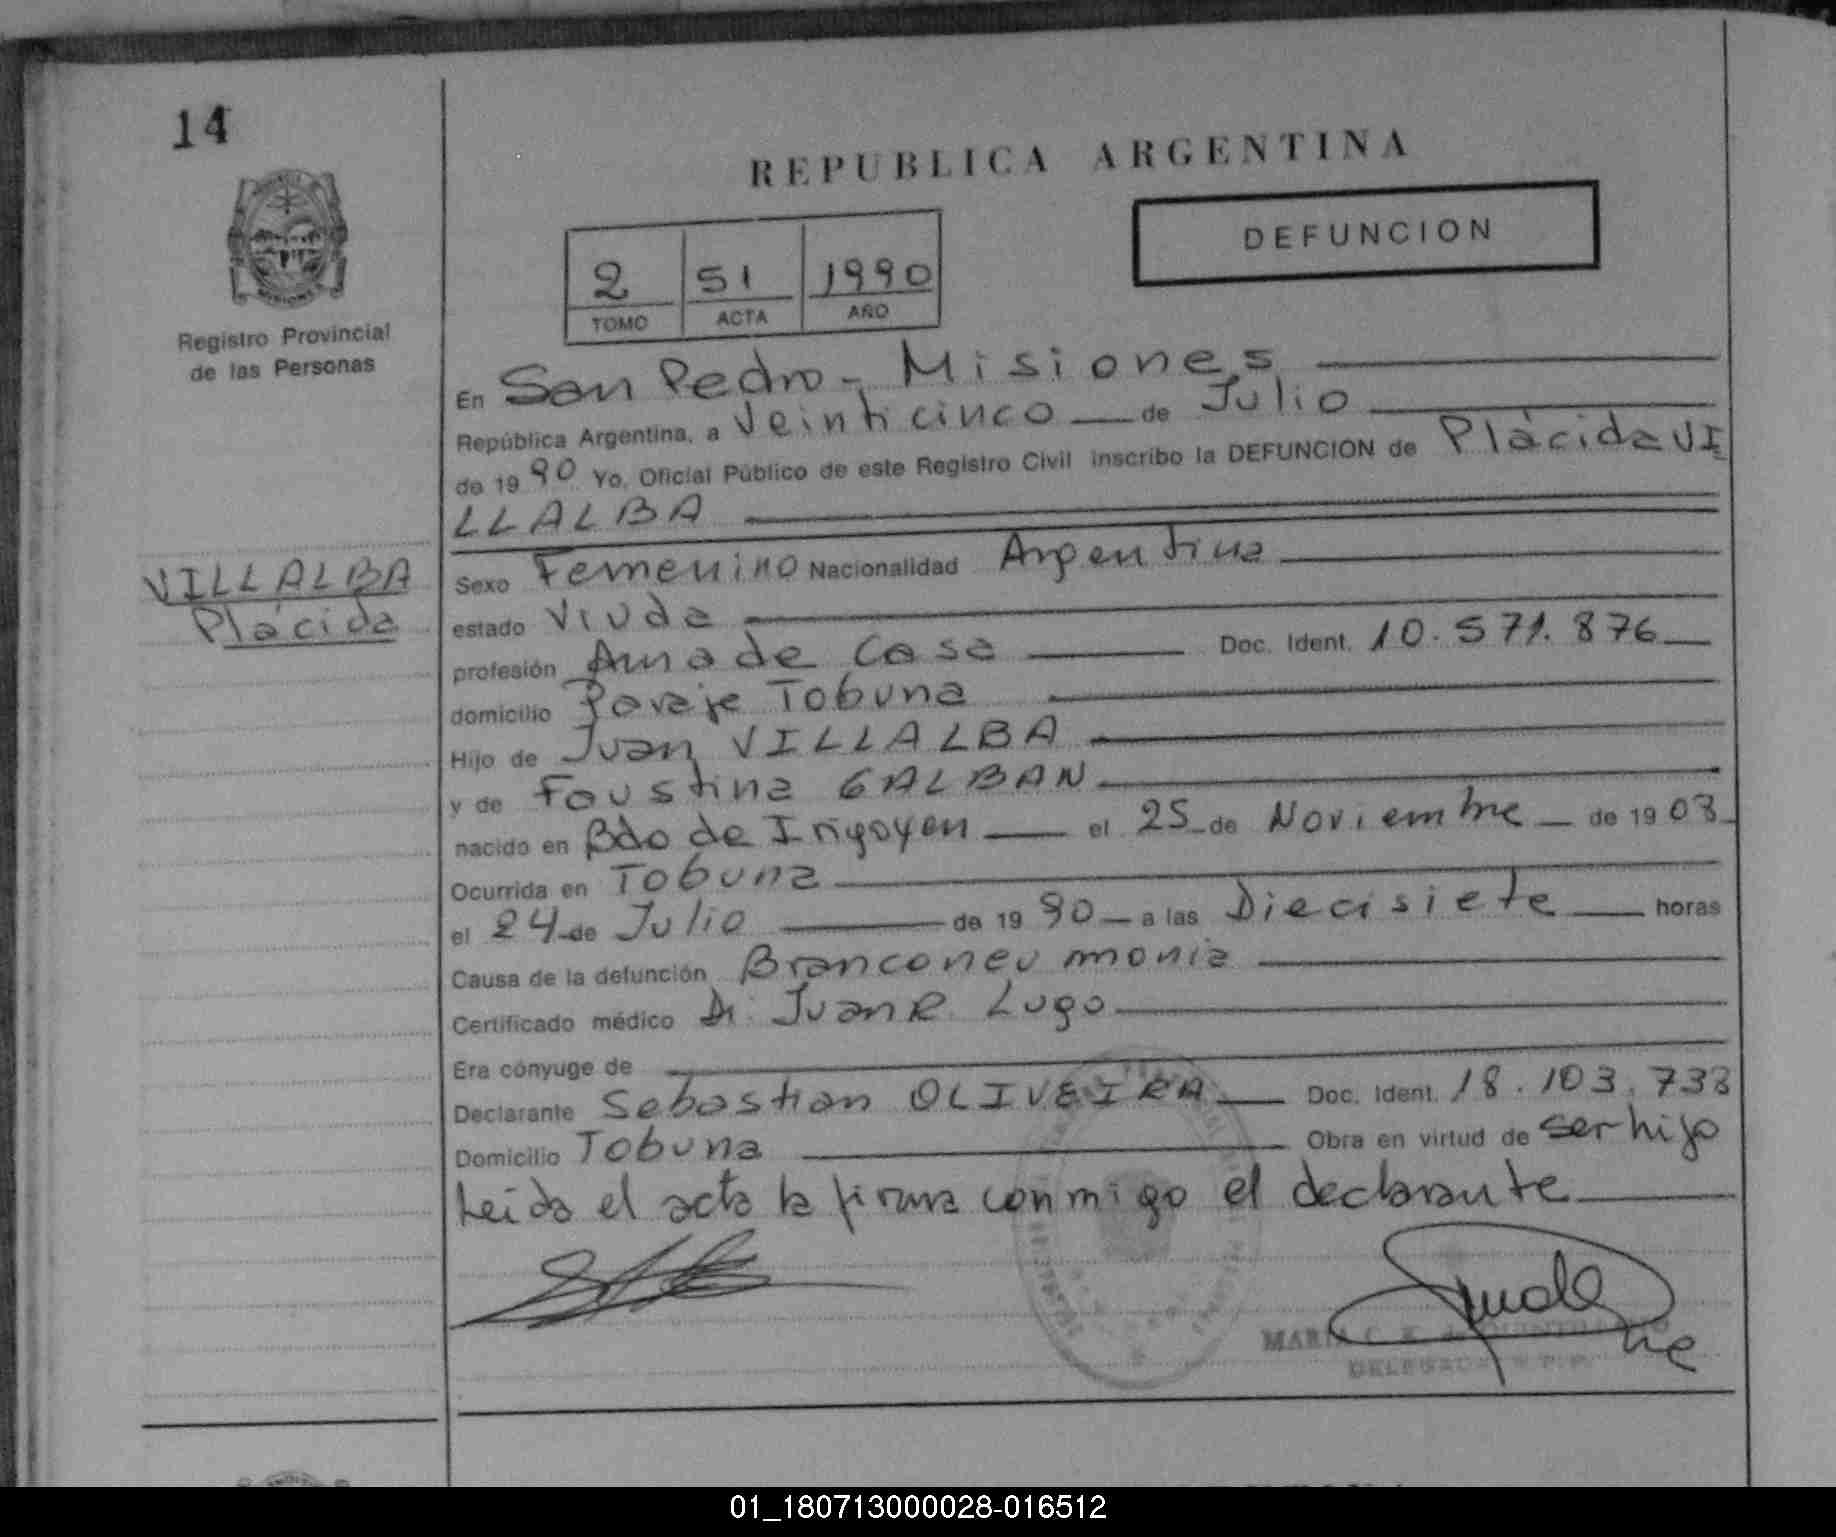 14
REPUBLICA ARGENTINA
DEFUNCION
2 51 1990
TOMO ACTA AÑO
Registro Provincial
de las Personas
En San Pedro - Misiones
República Argentina, a Veinticinco de Julio
de 1990 Yo, Oficial Público de este Registro Civil inscribo la DEFUNCION de Plácida VI
LLALBA
VILLALBA
Plácida
Sexo Femenino Nacionalidad Argentina
estado Viuda
profesión Ama de Casa Doc. Ident. 10.571.876
domicilio Paraje Tobuna
Hijo de Juan VILLALBA
y de Faustina GALBAN
nacido en Bdo de Irigoyen el 25 de Noviembre de 1903
Ocurrida en Tobuna
el 24 de Julio de 1990 a las Diecisiete horas
Causa de la defunción Bronconeumonia
Certificado médico Dr. Juan R. Lugo
Era cónyuge de
Declarante Sebastian OLIVEIRA Doc. Ident. 18.103.738
Domicilio Tobuna Obra en virtud de ser hijo
Leida el acta la firma conmigo el declarante
MARIA C.
DELEGADA
01_180713000028-016512